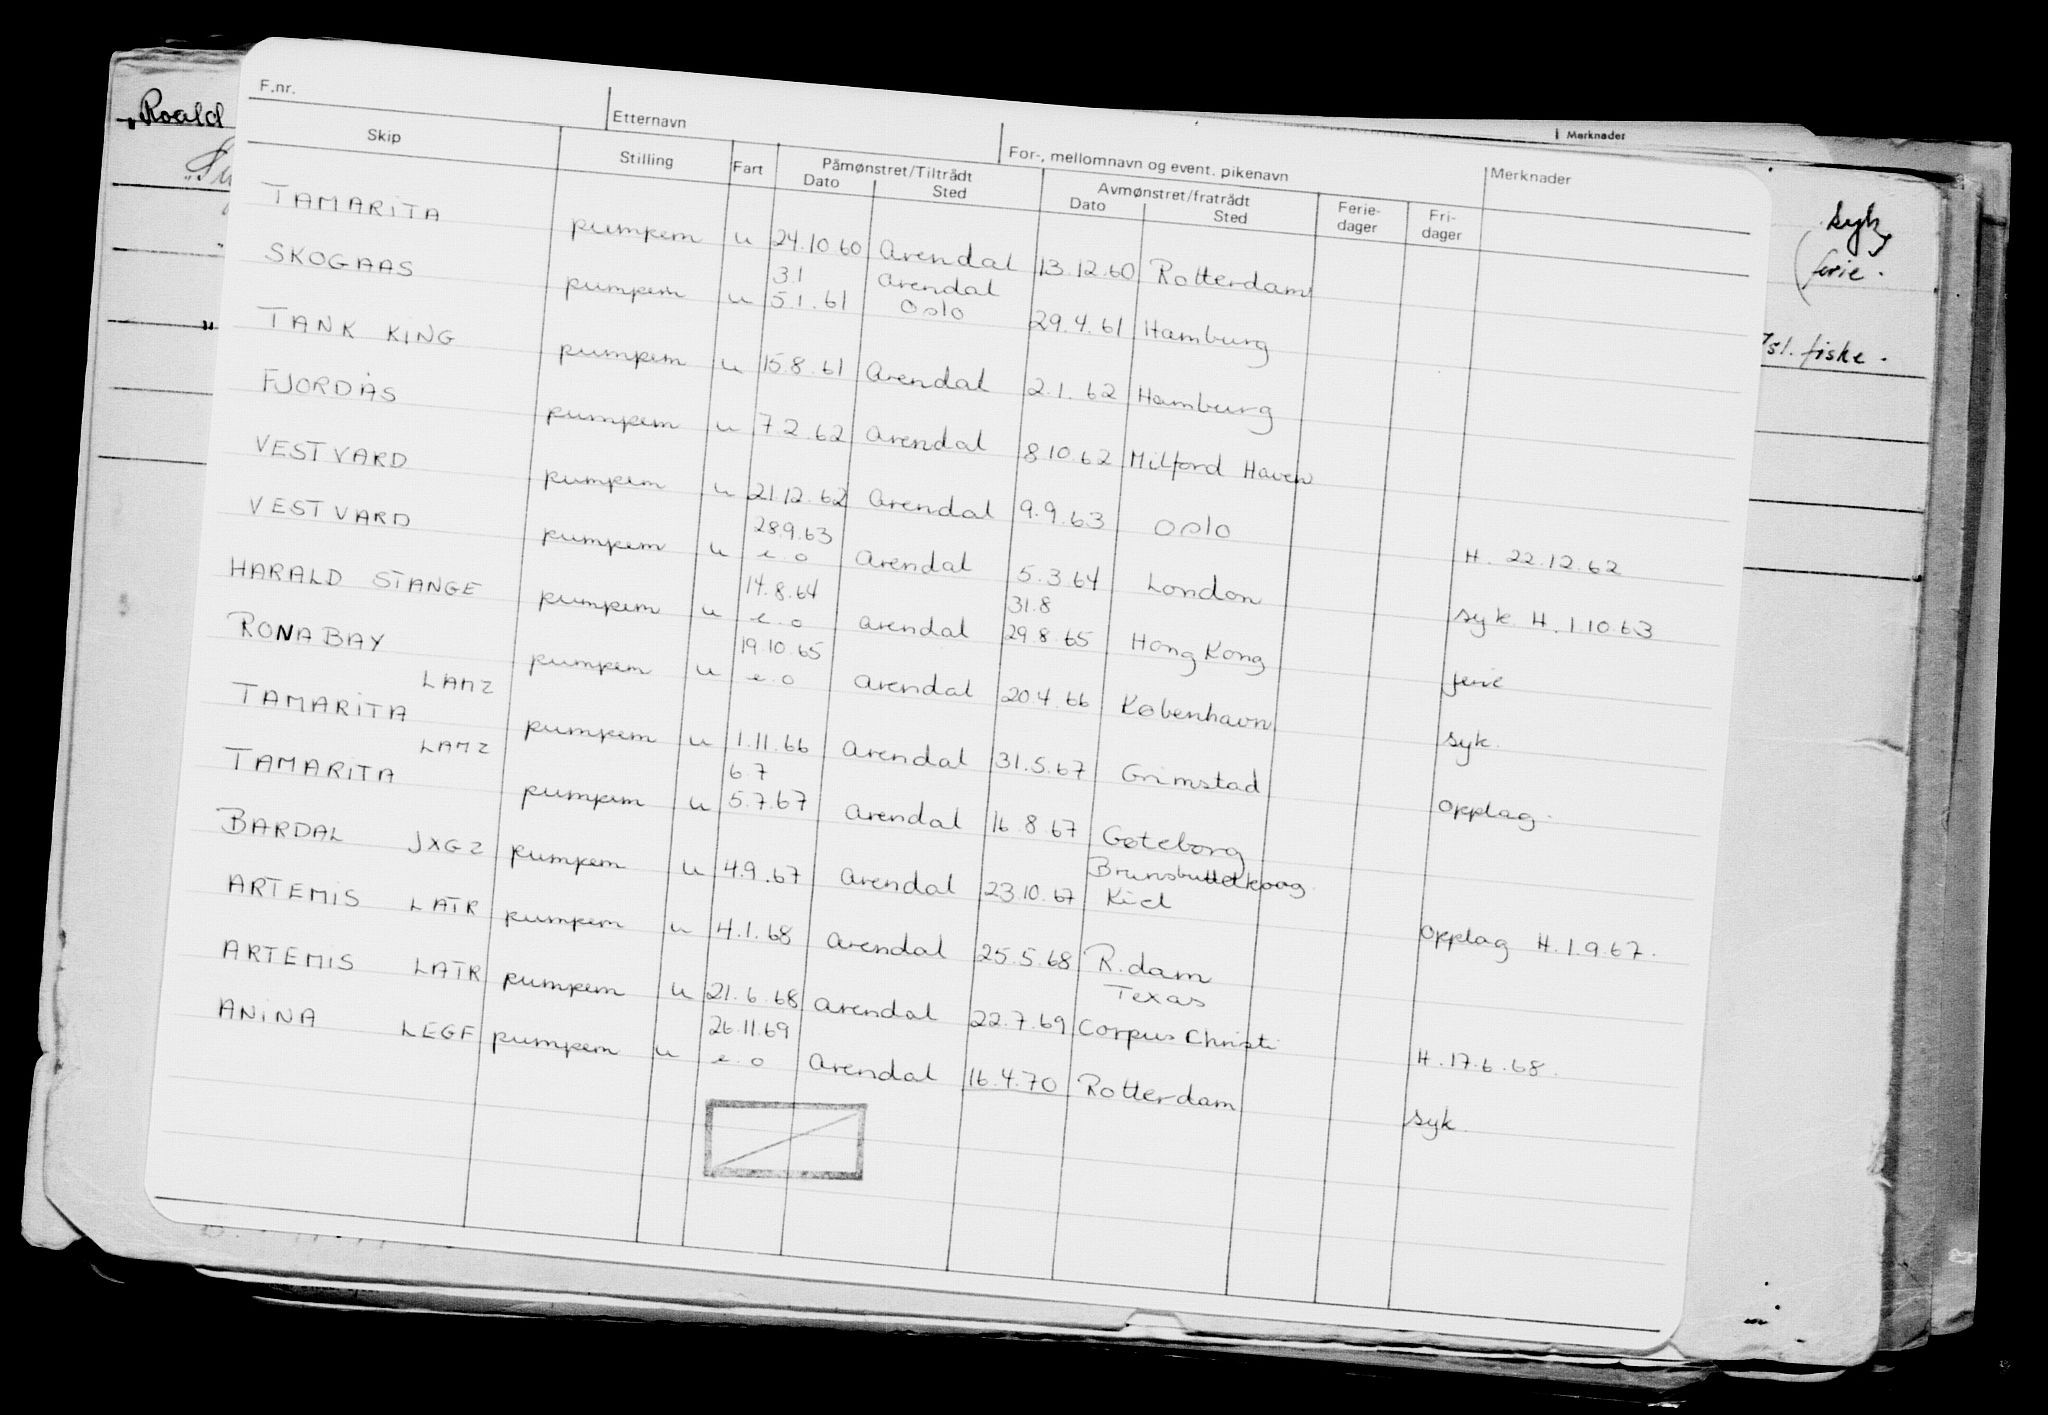 F.nr.
Etternavn
For-, mellomnavn og event. pikenavn
Merknader
Merknader
Roald
Skip
Stilling
Fart
Påmønstret/Tiltrådt
Dato
Sted
Avmønstret/fratrådt
Dato
Sted
Ferie-
dager
Fri-
dager
TAMARITA pumpem u 24.10.60 Arendal 13.12.60 Rotterdam
3.1 Arendal
SKOGAAS pumpem u 5.1.61 Oslo 29.4.61 Hamburg
TANK KING pumpem u 15.8.61 Arendal 2.1.62 Hamburg
FJORDÅS pumpem u 7.2.62 Arendal 8.10.62 Milford Haven
VESTVARD pumpem u 21.12.62 Arendal 9.9.63 Oslo H. 22.12.62
28.9.63
VESTVARD pumpem u e.o Arendal 5.3.64 London syk H. 1.10.63
14.8.64 31.8
HARALD STANGE pumpem u e.o Arendal 29.8.65 Hong Kong ferie
19.10.65
RONABAY pumpem u e.o Arendal 20.4.66 København syk.
LAMZ
TAMARITA pumpem u 1.11.66 Arendal 31.5.67 Grimstad opplag.
LAMZ 6.7
TAMARITA pumpem u 5.7.67 Arendal 16.8.67 Gøteborg
Brunsbuttelkoog
BARDAL JXGZ pumpem u 4.9.67 Arendal 23.10.67 Kiel opplag H.1.9.67.
ARTEMIS LATR pumpem u 4.1.68 Arendal 25.5.68 R.dam
Texas
ARTEMIS LATR pumpem u 21.6.68 Arendal 22.7.69 Corpus Christi H.17.6.68.
26.11.69
ANINA LEGF pumpem u e.o Arendal 16.4.70 Rotterdam syk.
syk,
ferie.
Isl. fiske.